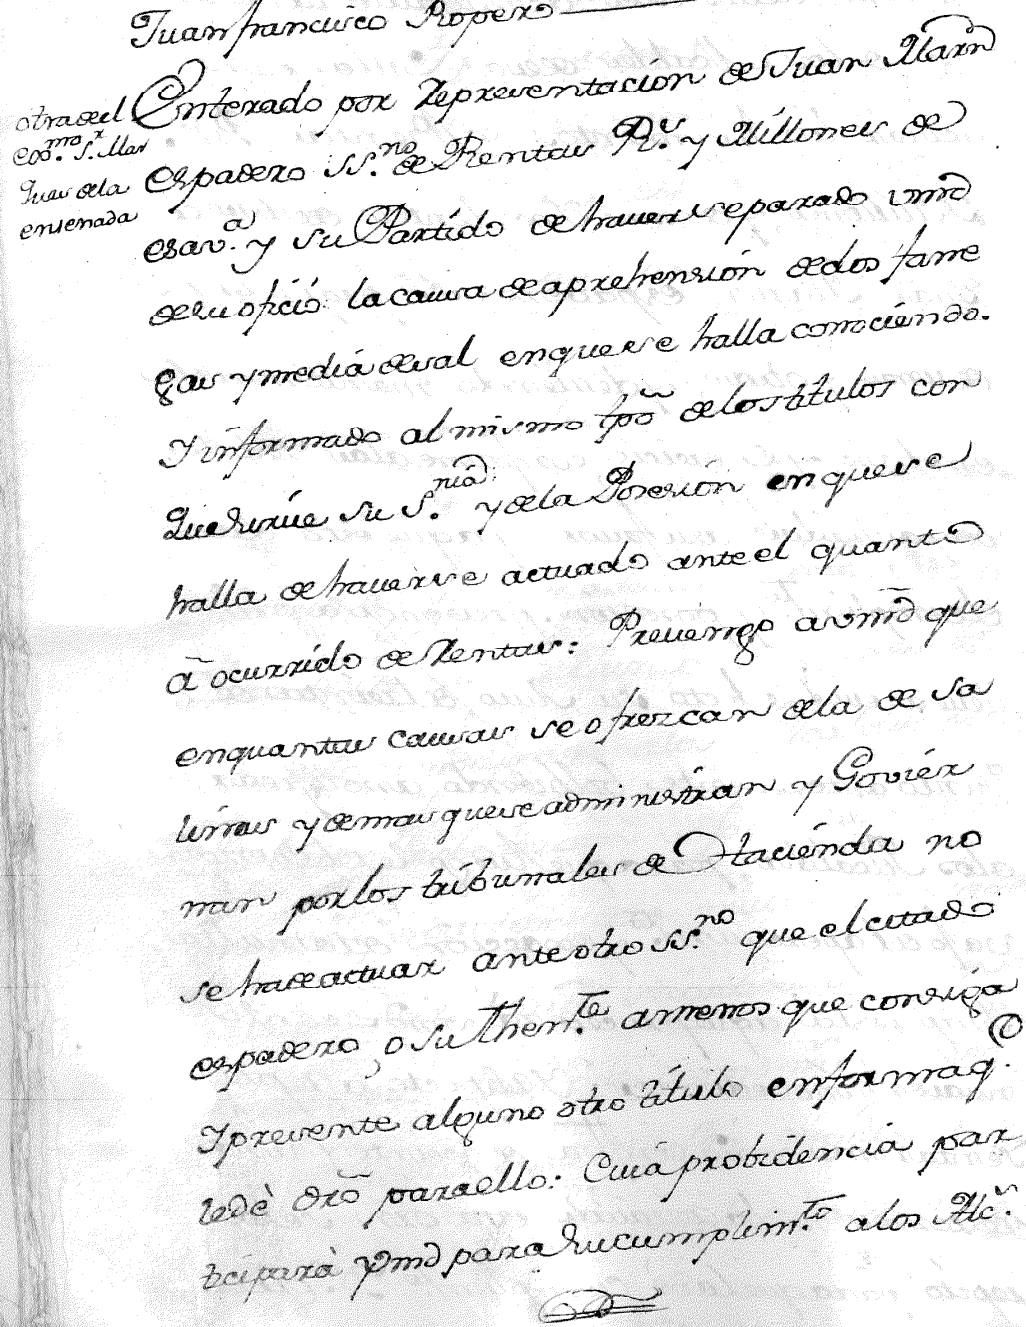 Juan francisco Ropero
otra del
Exmo. Sr. Mar
ques de la
ensenada
Enterado por representación de Juan Marn
espadero ss.no de Rentas R.s y Millones de
esa v.a y su Partido de haverse separado vmd
de su oficio la causa de aprehensión de dos fane
gas y media de sal en que se halla conociendo.
Y informado al mismo tpõ de los titulos con
que sirve su S.ria y de la Posesión en que se
halla de haverse actuado ante el quanto
ã ocurrido de rentas: Prevengo a vmd que
en quantas causas se ofrezcan de la de Sa
linas y demas que se administran y Govier
nan por los tribunales de Hacienda no
se ha de actuar ante otro ss.no que el citado
espadero, o su Then.te a menos que consiga
y presente alguno otro título en forma q.
le dè drõ para ello: Cuia probidencia par
ticiparà vmd para su cumplim.to a los Alc.s